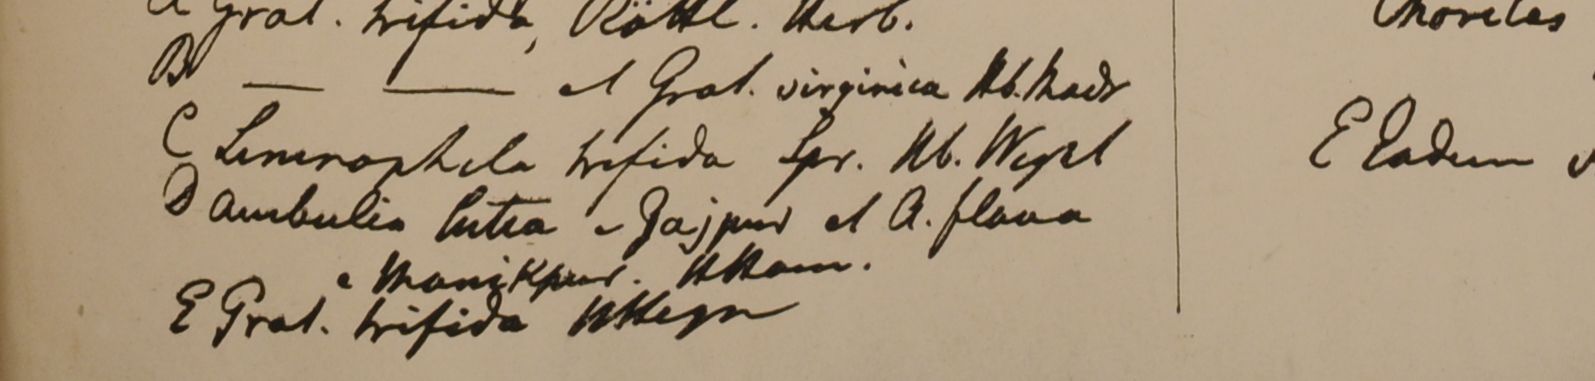 A Grat. trifida, Röttl. Herb.
B — — et Grat. virginica Hb. Madr
C Limnophila trifida Spr. Hb. Wight
D Ambulia lutea e Jajpur et A. flava
e Manikpur. HHam.
E Grat. trifida HHeyn
E Eadem